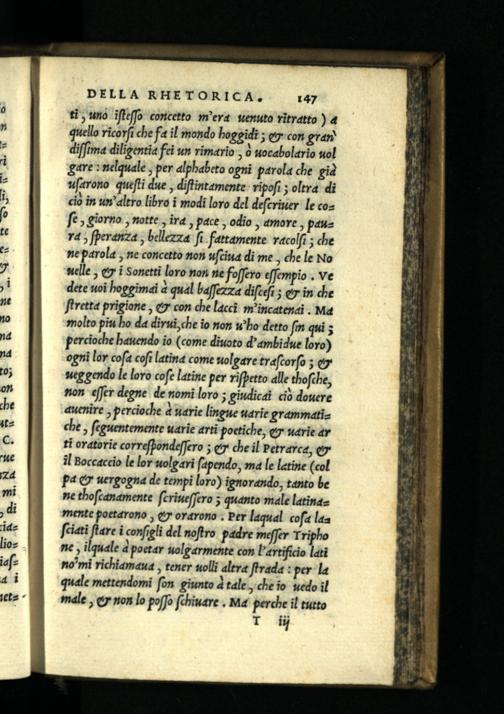 DELLA RHETORICA. 147
ti, uno istesso concetto m'era venuto ritratto) a
quello ricorsi che fa il mondo hoggidi; & con gran
dissima diligentia fei un rimario, ò vocabolario vol
gare: nelquale, per alphabeto ogni parola che già
usarono questi due, distintamente riposi; oltra di
ciò in un'altro libro i modi loro del descriver le co-
se, giorno, notte, ira, pace, odio, amore, pau-
ra, speranza, bellezza si fattamente racolsi; che
ne parola, ne concetto non usciva di me, che le No
velle, & i Sonetti loro non ne fossero essempio. Ve
dete voi hoggimai à qual bassezza discesi; & in che
stretta prigione, & con che lacci m'incatenai. Ma
molto piu ho da dirui, che io non v'ho detto sin qui;
percioche havendo io (come divoto d'ambidue loro)
ogni lor cosa cosi latina come volgare trascorso; &
veggendo le loro cose latine per rispetto alle thosche,
non esser degne de nomi loro; giudicai ciò dovere
avenire, percioche à varie lingue varie grammati-
che, seguentemente varie arti poetiche, & varie ar
ti oratorie correspondessero; & che il Petrarca, &
il Boccaccio le lor volgari sapendo, ma le latine (col
pa & vergogna de tempi loro) ignorando, tanto be
ne thoscanamente scrivessero; quanto male latina-
mente poetarono, & orarono. Per laqual cosa la-
sciati stare i consigli del nostro padre messer Tripho
ne, ilquale à poetar volgarmente con l'artificio lati
no'mi richiamava, tener volli altra strada: per la
quale mettendomi son giunto à tale, che io vedo il
male, & non lo posso schivare. Ma perche il tutto
T iij